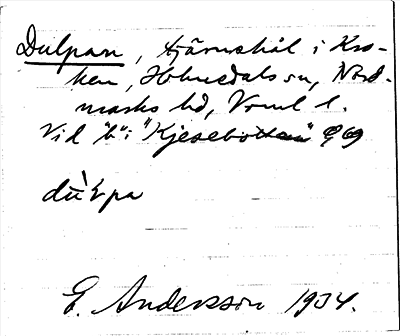 Dulpan, tjärnshål i Kro-
ken, Holmedals sn, Nord-
marks hd, Vrml l.
Vid "b" i "Kjesebotten" Q 69
E. Andersson 1934.